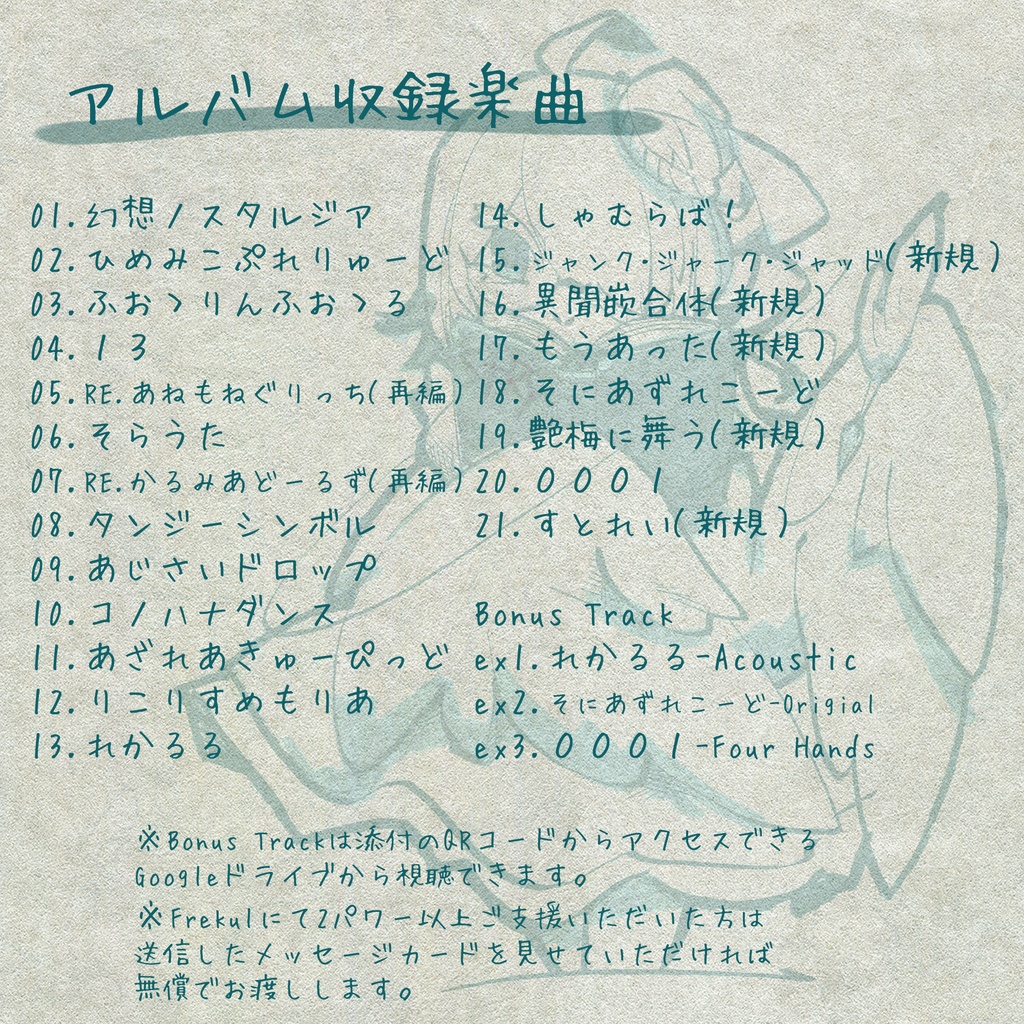 アルバム収録楽曲
01.幻想ノスタルジア
02.ひめみこぷれりゅーど
03.ふぉゝりんふぉゝる
04.13
05.RE.あねもねぐりっち(再編)
06.そらうた
07.RE.かるみあどーるず(再編)
08.タンジーシンボル
09.あじさいドロップ
10.コノハナダンス
11.あざれあきゅーぴっど
12.りこりすめもりあ
13.れかるる
14.しゃむらば!
15.ジャンク・ジャーク・ジャッド(新規)
16.異聞嵌合体(新規)
17.もうあった(新規)
18.そにあずれこーど
19.艶梅に舞う(新規)
20.0001
21.すとれい(新規)
Bonus Track
ex1.れかるる-Acoustic
ex2.そにあずれこーど-Origial
ex3.0001-Four Hands
※Bonus Trackは添付のQRコードからアクセスできる
Googleドライブから視聴できます。
※Frekulにて2パワー以上ご支援いただいた方は
送信したメッセージカードを見せていただければ
無償でお渡しします。